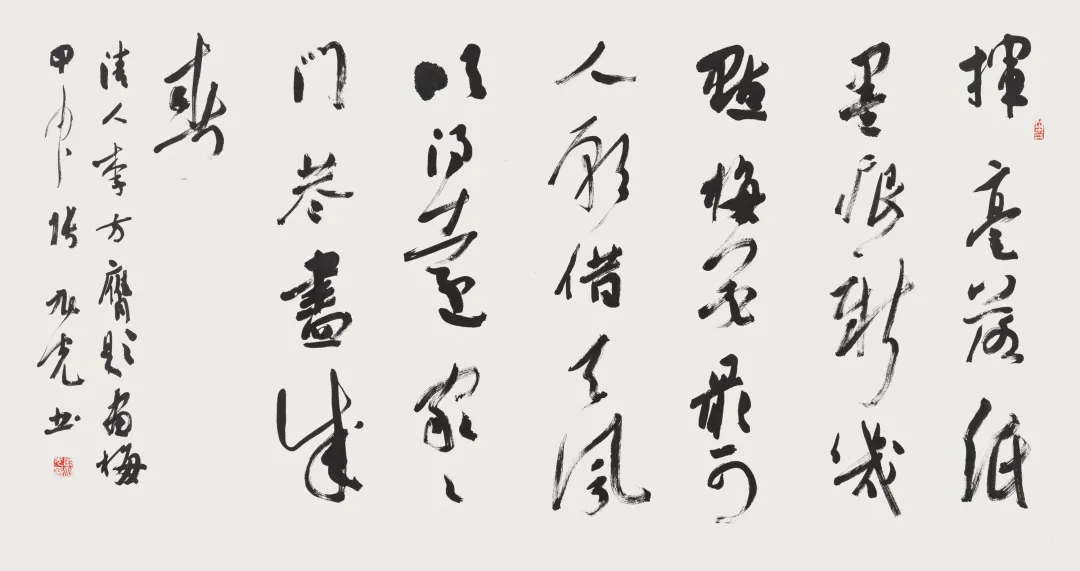 揮毫落紙
墨痕新幾
點梅花最可
人願借天風
吹得遠家々
门巷盡成
春
清人李方膺題畫梅
甲申張旭光书